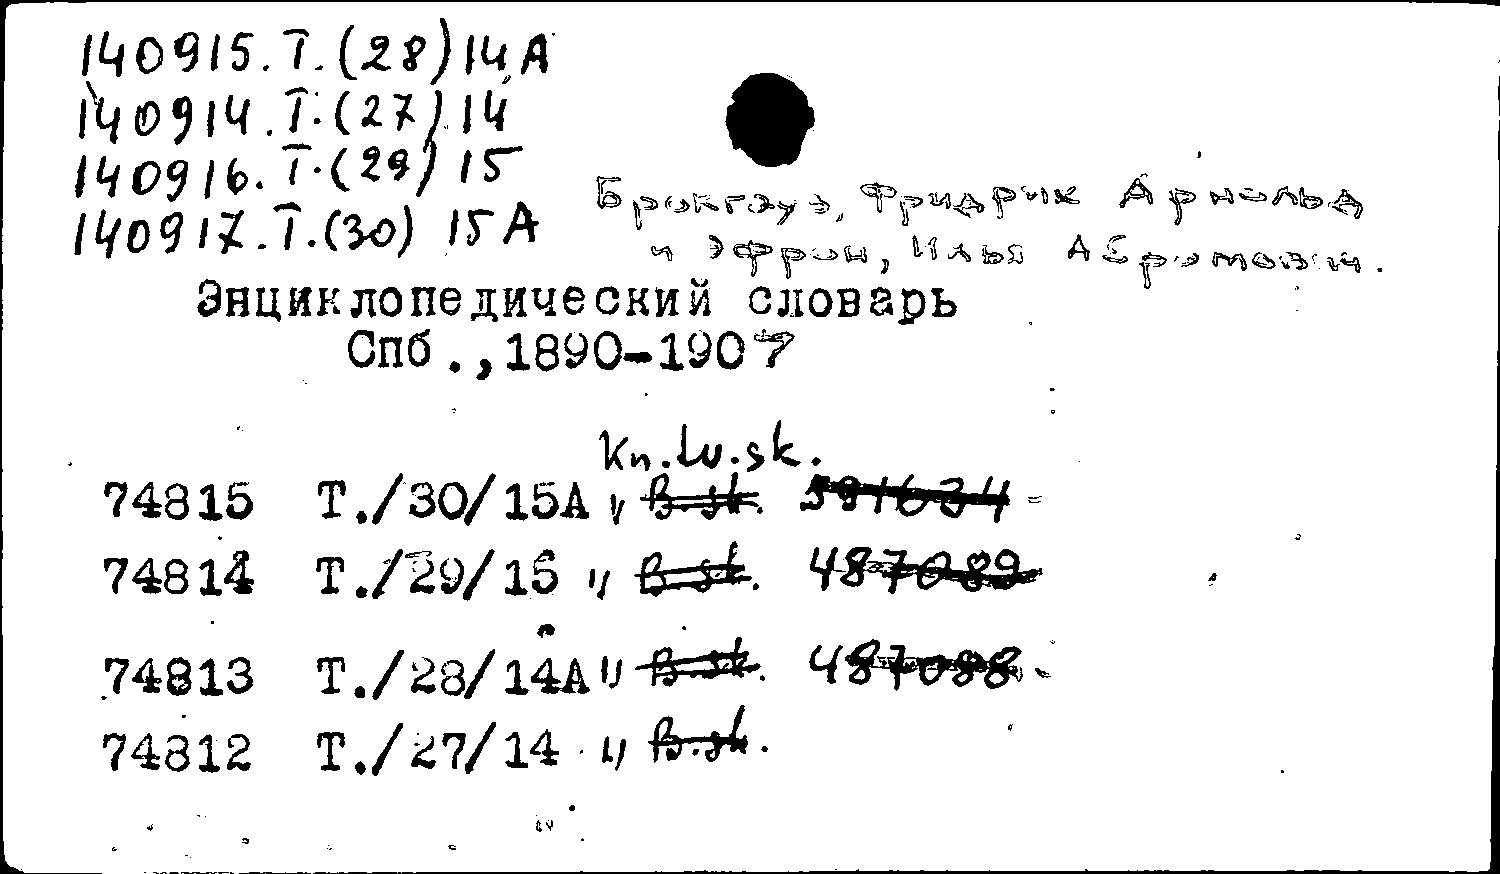 140915. Т. (28) 14А
140914. Т. (27) 14
140916. Т. (29) 15
140917. Т. (30) 15А
Брокгауз, Фридрих Арнольд
и Эфрон, Илья Абрамович.
Энциклопедический словарь
Спб.,1890-1907
Kn.lv.sk.
74815 Т./30/15А " B.sk. 591634
74814 Т./29/15 " B.sk. 487089
74813 Т./28/14А " B.sk. 487088
74812 Т./27/14 " B.sk.